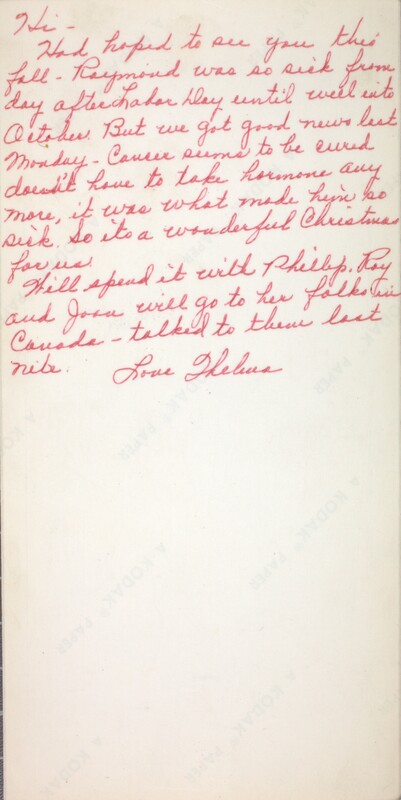 Hi -
Had hoped to see you this
fall - Raymond was so sick from
day after Labor Day until well into
October. But we got good news last
Monday - Cancer seems to be cured
doesn't have to take hormone any
more, it was what made him so
sick. So its a wonderful Christmas
for us.
Will spend it with Phillip. Ray
and Joan will go to her folks in
Canada - talked to them last
nite. Love Thelma
A KODAK PAPER
A KODAK PAPER
A KODAK PAPER
A KODAK PAPER
A KODAK PAPER